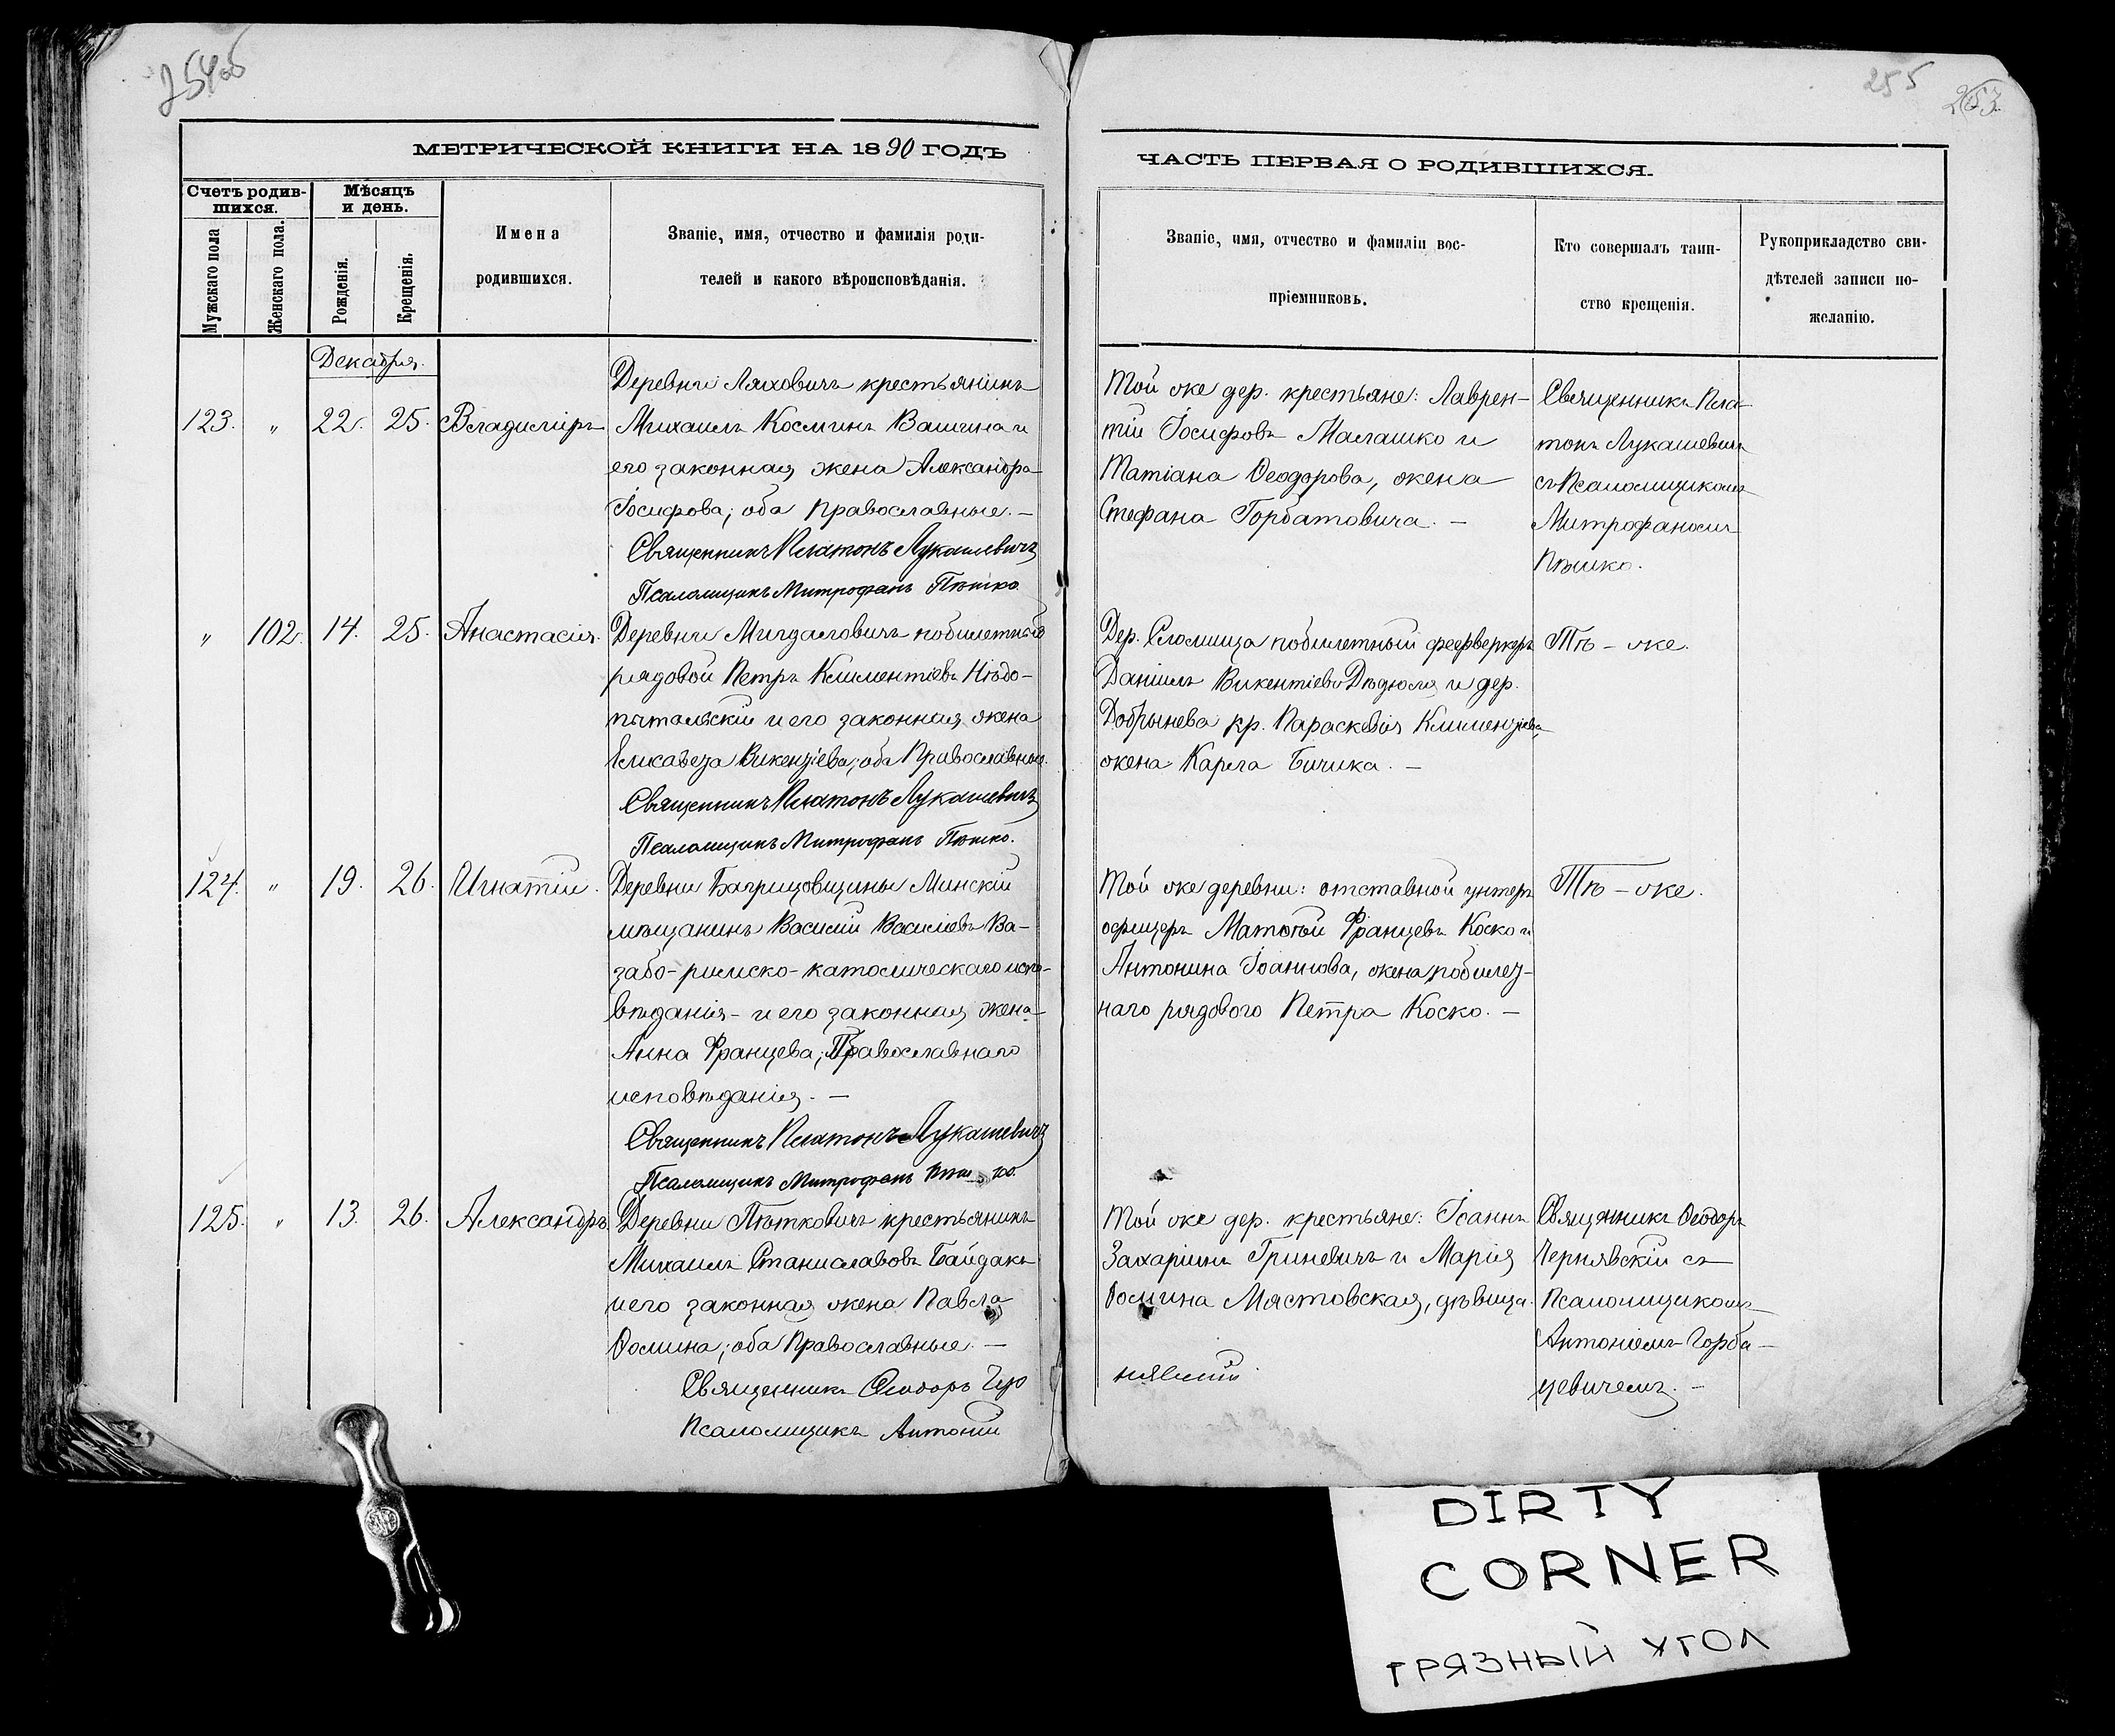 254об
МЕТРИЧЕСКОЙ КНИГИ НА 1890 ГОДЪ
Счетъ родив-
шихся.
Мѣсяцъ
и день.
Мужскаго пола
Женскаго пола.
Рожденія.
Крещенія.
Имена
родившихся.
Званіе, имя, отчество и фамилія роди-
телей и какого вѣроисповѣданія.
Декабря.
123. " 22. 25. Владиміръ
Деревни Ляховичъ крестьянинъ
Михаилъ Косминъ Вашина и
его законная жена Александра
Іосифова; оба Православные. —
Священникъ Платонъ Лукашевичъ
Псаломщикъ Митрофанъ Пѣшко
" 102. 14. 25. Анастасія.
Деревни Мигдаловичъ побилетный
рядовой Петръ Климентіевъ Нѣдо-
пытальскій и его законная жена
Елисавета Викентіева; оба Православные.
Священникъ Платонъ Лукашевичъ
Псаломщикъ Митрофанъ Пѣшко.
124. " 19. 26. Игнатій.
Деревни Багрицовщины Минскій
мѣщанинъ Василій Василіевъ Ва-
забо- римско-католическаго испо-
вѣданія- и его законная жена
Анна Францева; Православнаго
исповѣданія. —
Священникъ Платонъ Лукашевичъ
Псаломщикъ Митрофанъ Пѣшко.
125. " 13. 26. Александръ
Деревни Пѣтковичъ крестьянинъ
Михаилъ Станиславовъ Байдакъ
и его законная жена Павла
Ѳомина; оба Православные. —
Священникъ Ѳеодоръ Чер
Псаломщикъ Антоній
255
253
ЧАСТЬ ПЕРВАЯ О РОДИВШИХСЯ.
Званіе, имя, отчество и фамиліи вос-
пріемниковъ.
Кто совершалъ таин-
ство крещенія.
Рукоприкладство сви-
дѣтелей записи по-
желанію.
Той же дер. крестьяне: Лаврен-
тій Іосифовъ Малашко и
Татіана Ѳеодорова, жена
Стефана Горбатовича. —
Священникъ Пла-
тонъ Лукашевичъ
съ Псаломщикомъ
Митрофаномъ
Пѣшко.
Дер. Сломища побилетный фейерверкеръ
Даніилъ Викентіевъ Дѣдюля и дер.
Добрынева кр. Параскевія Климентіева,
жена Карла Бичика. —
Тѣ - же.
Той же деревни: отставной унтеръ
офицеръ Матѳей Францевъ Коско и
Антонина Іоаннова, жена побилет-
наго рядового Петра Коско. —
Тѣ - же.
Той же дер. крестьяне: Іоаннъ
Захаріинъ Гриневичъ и Марія
Ѳомина Мястовская, дѣвица.
нявскій.
Священникъ Ѳеодоръ
Чернявскій съ
Псаломщикомъ
Антоніемъ Горба-
цевичемъ. -
DIRTY
CORNER
ГРЯЗНЫЙ УГОЛ